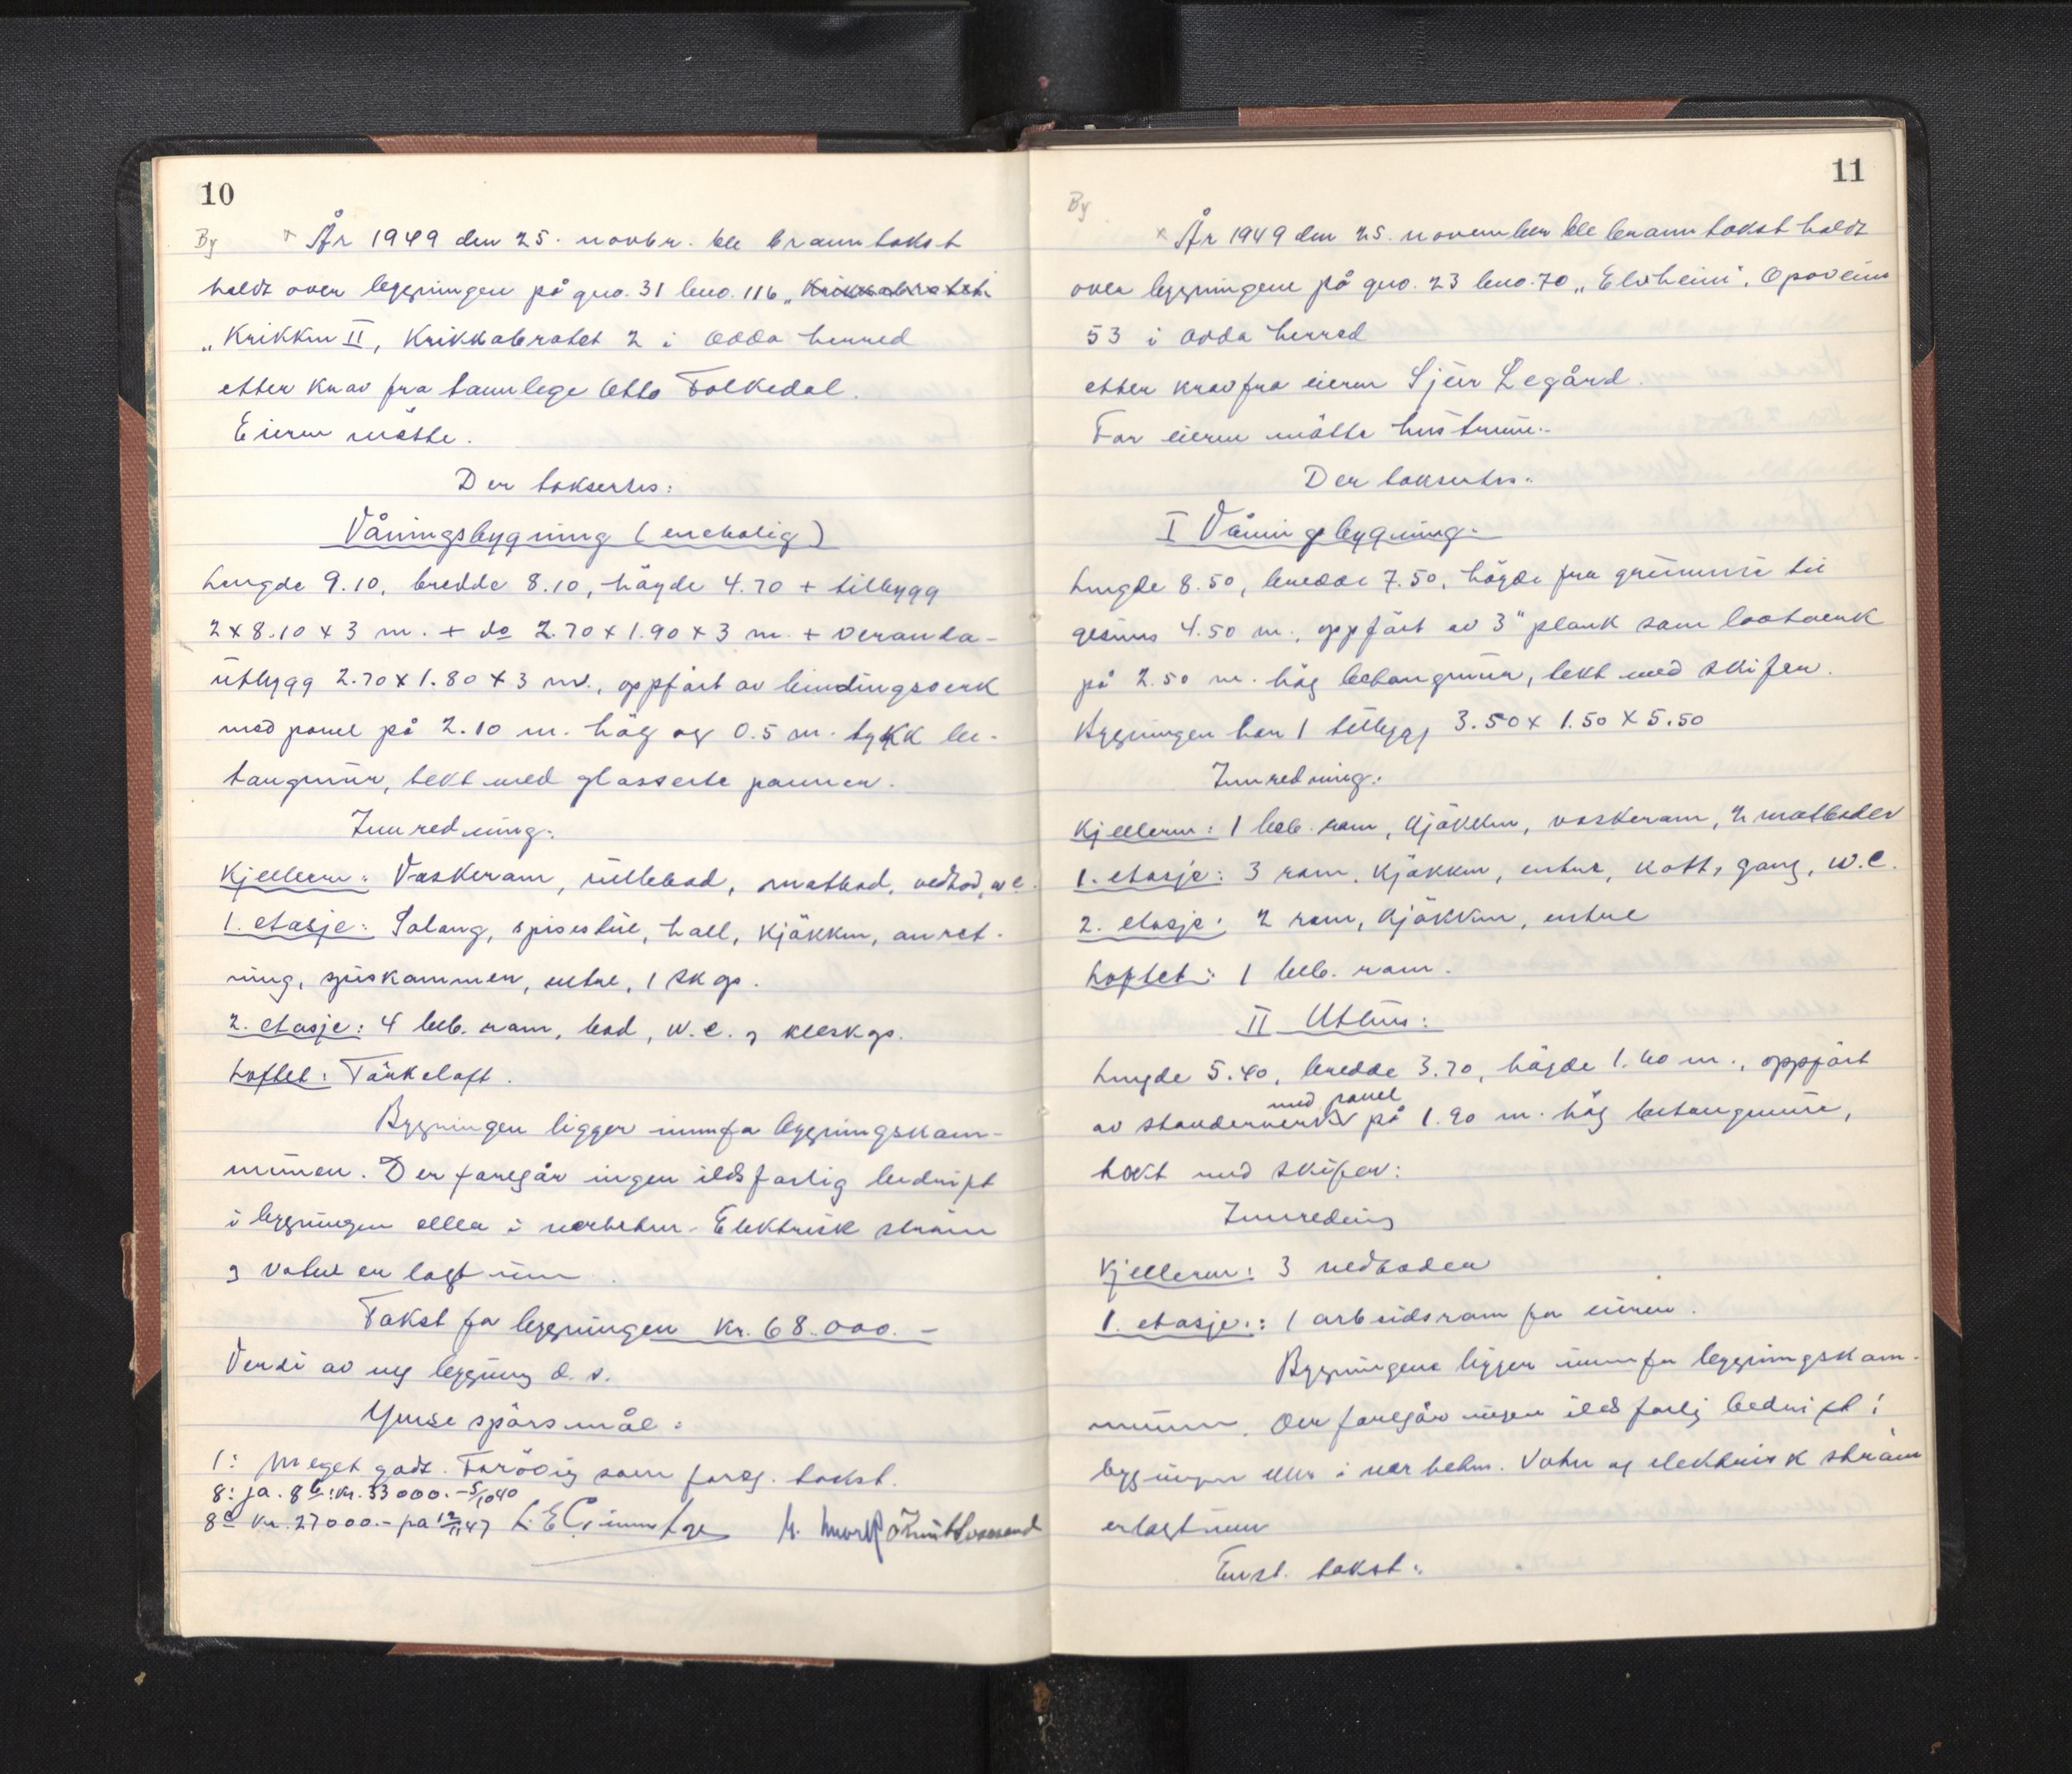 10
By × År 1949 den 25. novbr. ble branntakst
holdt over bygningen på gno. 31 bno. 116 „Krikkabrotet
„Krikken II, Krikkabrotet 2 i Odda herred
etter krav fra tannlege Otto Folkedal.
Eieren møtte.
Der takseres:
Våningsbygning (enebolig)
Lengde 9.10, bredde 8.10, høyde 4.70 + tilbygg
2 x 8.10 x 3 m. + do 2.70 x 1.90 x 3 m. + veranda-
utbygg 2.70 x 1.80 x 3 m., oppført av bindingsverk
med panel på 2.10 m. høg og 0.5 m. tykk be-
tongmur, tekt med glasserte panner.
Innredning:
Kjelleren: Vaskerom, rullebod, matbod, vedbod, w c.
1. etasje: Salong, spisestue, hall, kjøkken, anret-
ning, spiskammer, entre, 1 skap.
2. etasje: 4 beb. rom, bad, w.c. og kleskap.
Loftet: Tørkeloft.
Bygningen ligger innenfor bygningskom-
munen. Der foregår ingen ildsfarlig bedrift
i bygningen eller i nærheten. Elektrisk strøm
og vatn er lagt inn.
Takst for bygningen kr. 68.000.-
Verdi av ny bygning d. s.
Ymse spørsmål:
1: Meget godt. Forøvrig som foreg. takst.
8: ja. 8b: kr. 33000.- 5/10 40
8c kr. 27000.- på 12/11 47
11
By
× År 1949 den 25. november ble branntakst holdt
over bygningene på gno. 23 bno. 70 „Elvheim", Opoveien
53 i Odda herred
etter krav fra eieren Sjur Legård.
For eieren møtte hustruen.
Der takseres:
I Våningsbygning:
Lengde 8.50, bredde 7.50, høyde fra grunnmur til
gesims 4.50 m., oppført av 3" plank som lastverk
på 2.50 m. høg betongmur, tekt med skifer.
Bygningen har 1 tilbygg 3.50 x 1.50 x 5.50
Innredning:
Kjelleren: 1 beb. rom, kjøkken, vaskerom, 2 matboder
1. etasje: 3 rom, kjøkken, entre, kott, gang, w.c.
2. etasje: 2 rom, kjøkken, entre
Loftet: 1 beb. rom.
II Uthus:
Lengde 5.40, bredde 3.70, høyde 1.60 m., oppført
med panel
av stenderverk på 1.90 m. høg betongmur,
tekt med skifer:
Innreding
Kjelleren: 3 vedboder
1. etasje: 1 arbeidsrom for eieren.
Bygningene ligger innenfor bygningskom-
munen. Der foregår ingen ildsfarlig bedrift i
bygningen eller i nærheten. Vatn og elektrisk strøm
er lagt inn
Enst. takst: